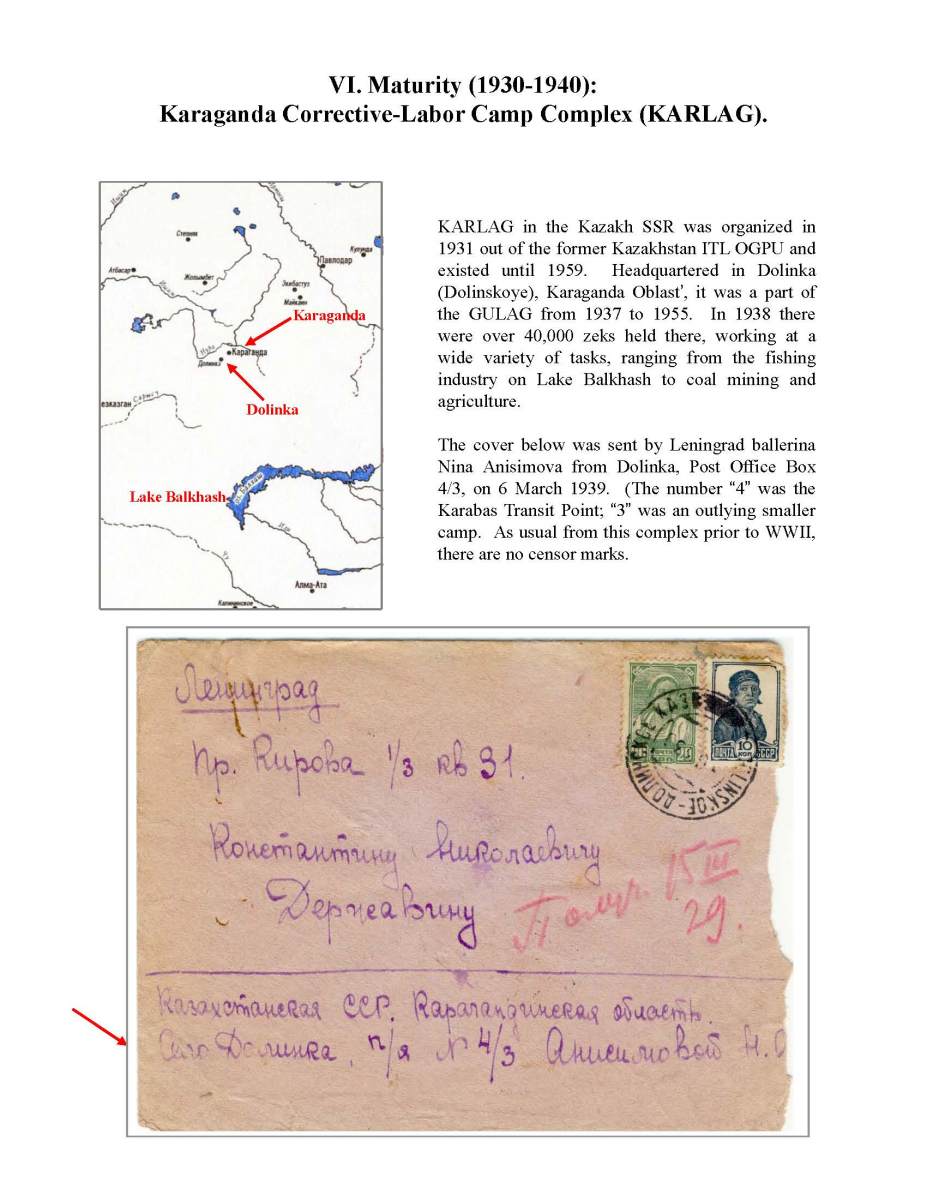 VI. Maturity (1930-1940):
Karaganda Corrective-Labor Camp Complex (KARLAG).
Степняк
Павлодар
Кулунда
Атбасар
Жолымбет
Экибастуз
Майкаин
Ишим
Karaganda
Нура
Караганда
Долинка
Dolinka
езказган
Сарысу
Lake Balkhash
оз. Балхаш
Или
Чу
Алма-Ата
Калининское
KARLAG in the Kazakh SSR was organized in
1931 out of the former Kazakhstan ITL OGPU and
existed until 1959. Headquartered in Dolinka
(Dolinskoye), Karaganda Oblast', it was a part of
the GULAG from 1937 to 1955. In 1938 there
were over 40,000 zeks held there, working at a
wide variety of tasks, ranging from the fishing
industry on Lake Balkhash to coal mining and
agriculture.
The cover below was sent by Leningrad ballerina
Nina Anisimova from Dolinka, Post Office Box
4/3, on 6 March 1939. (The number “4” was the
Karabas Transit Point; “3” was an outlying smaller
camp. As usual from this complex prior to WWII,
there are no censor marks.
Ленинград
Пр. Кирова 1/3 кв 31.
Константину Николаевичу
Державину
Получ. 15 III
29.
ПОЧТА 10 КОП. СССР
LINSKOE-ДОЛИНСКОЕ КАЗ
Казахстанская ССР. Карагандинская область.
Село Долинка, п/я № 4/3 Анисимовой Н.